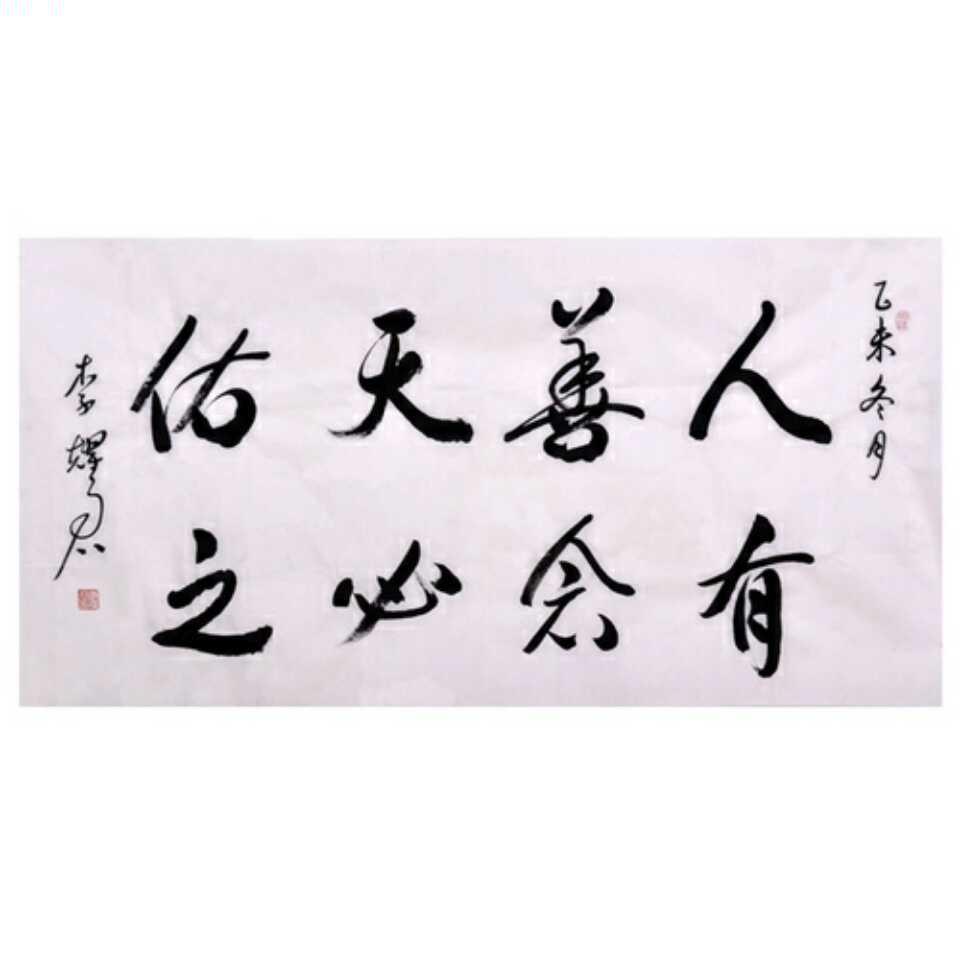 乙未冬月
人有
善念
天必
佑之
李耀君